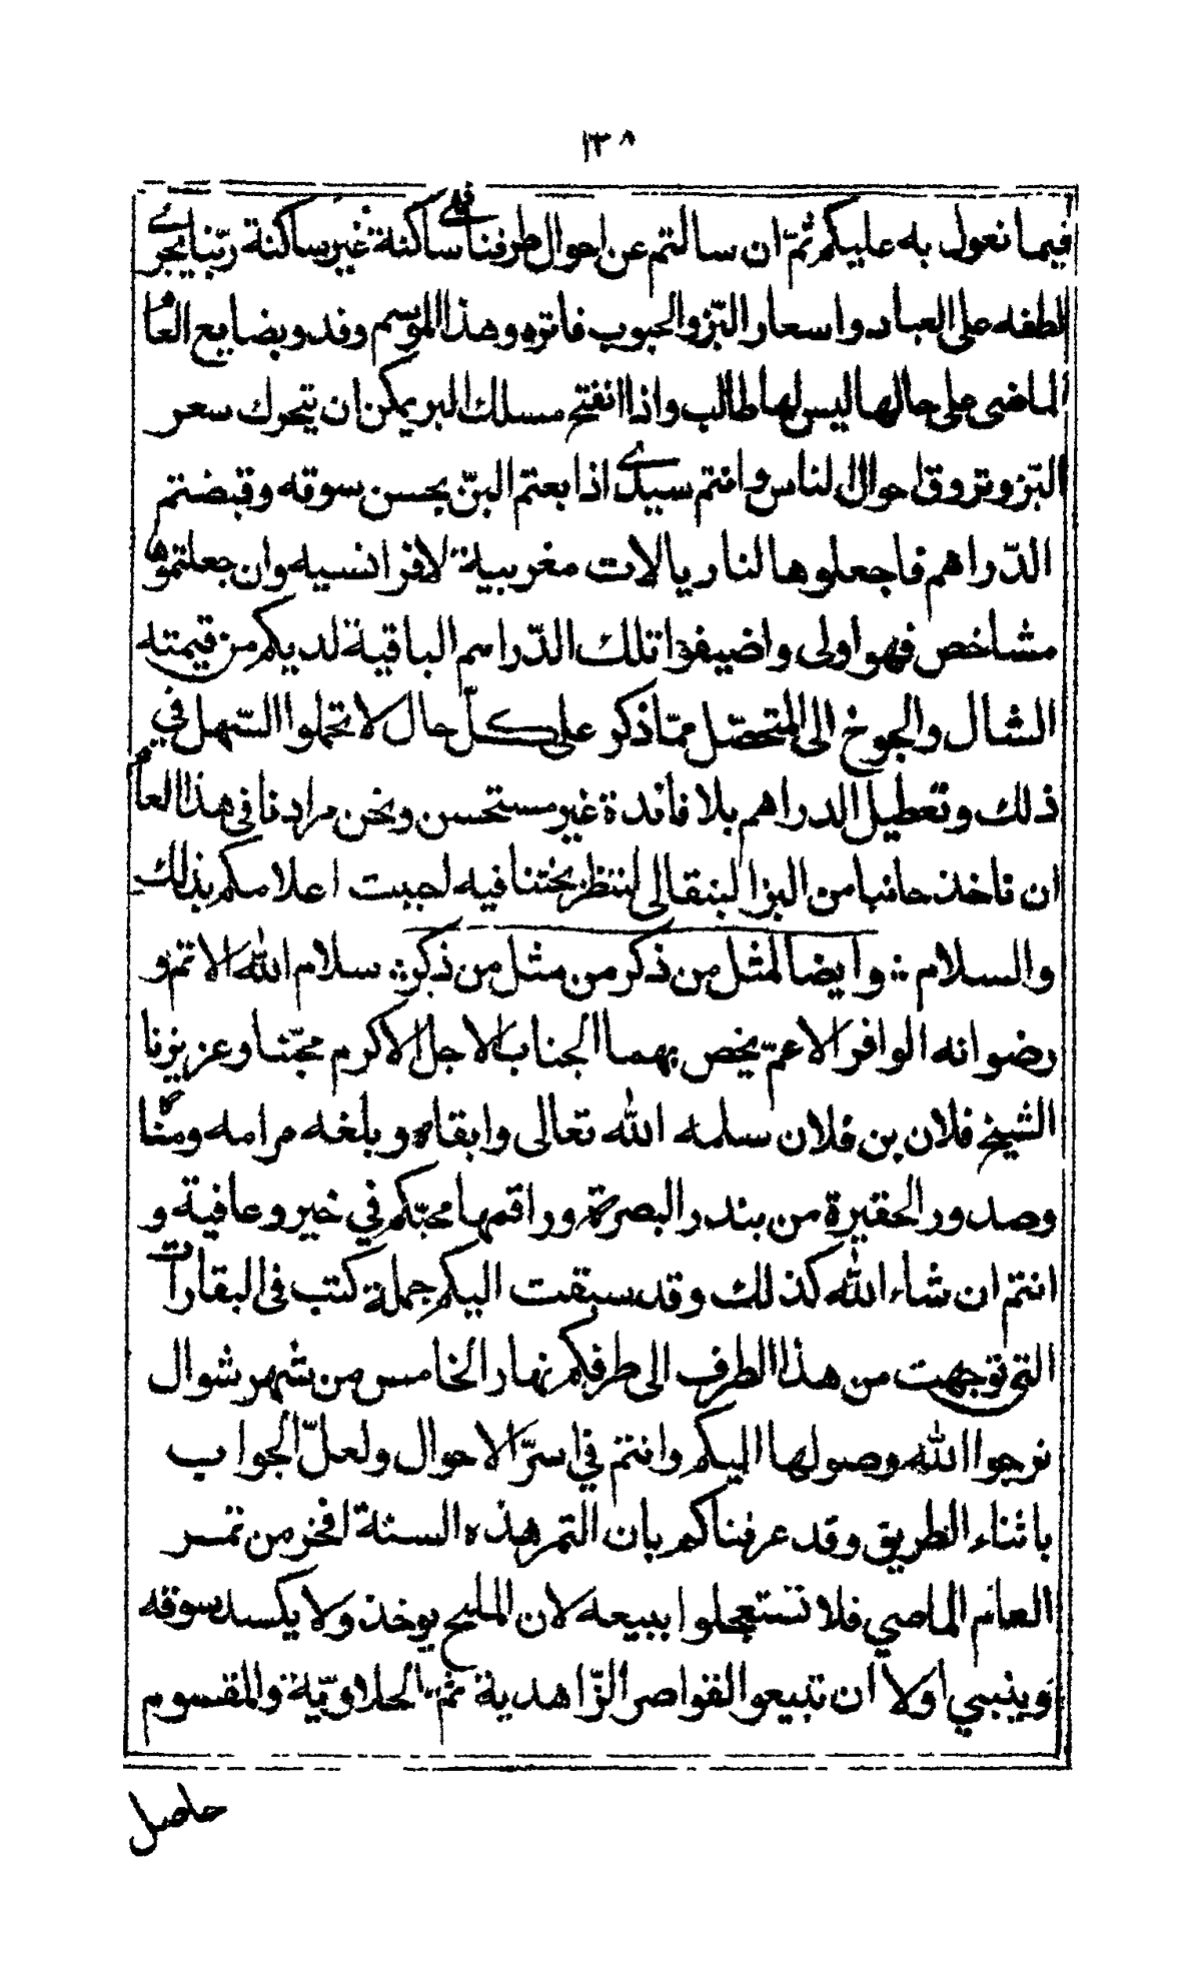 ١٣٨
فيما نعول به عليكم ثمّ ان سالتم عن احوال طرفنا فهي ساكنة غير ساكنة ربّنا يجري
لطفه على العباد واسعار البّز والحبوب فاتره وهذا الموسم وفد وبضايع العام
الماضي على حالها ليس لها طالب واذا انفتح مسلك البر يمكن ان يتحرك سعر
البّز وتروق احوال الناس وانتم سيدي اذا بعتم البنّ بحسن سوقه وقبضتم
الدّراهم فاجعلوها لنا ريالات مغربية لا فرانسيه وان جعلتموها
مشاخص فهو اولى واضيفوا تلك الدّراهم الباقية لديكم من قيمته
الشال والجوخ الى المتحصّل ممّا ذكر على كلّ حال لا تحملوا السّهل في
ذلك وتعطيل الدراهم بلا فائدة غير مستحسن ونحن مرادنا في هذا العام
ان ناخذ جانبا من البز البنقالي لننظر بختنا فيه لحببت اعلامكم بذلك
والسلام : وايضا لمثل من ذكر من مثل من ذكر : سلام الله الاتم و
رضوانه الوافر الاعمّ يخص بهما الجناب الاجل الاكرم محبّنا وعزيزنا
الشيخ فلان بن فلان سلمه الله تعالى وابقاه وبلغه مرامه ومناه
وصدور الحقيرة من بندر البصرة وراقمها محبّكم في خير وعافية و
انتم ان شاء الله كذلك وقد سبقت اليكم جملة كتب في البقارات
التي توجهت من هذا الطرف الى طرفكم نهار الخامس من شهر شوال
نرجوا الله وصولها اليكم وانتم في اسرّ الاحوال ولعلّ الجواب
باثناء الطريق وقد عرفناكم بان التمر هذه السنة افخر من تمر
العام الماضي فلا تستعجلوا ببيعه لان المليح يوخذ ولا يكسد سوقه
وينبغي اولا ان تبيعوا القواصر الزّاهدية ثمّ الحلاويّة والمقسوم
حاصل